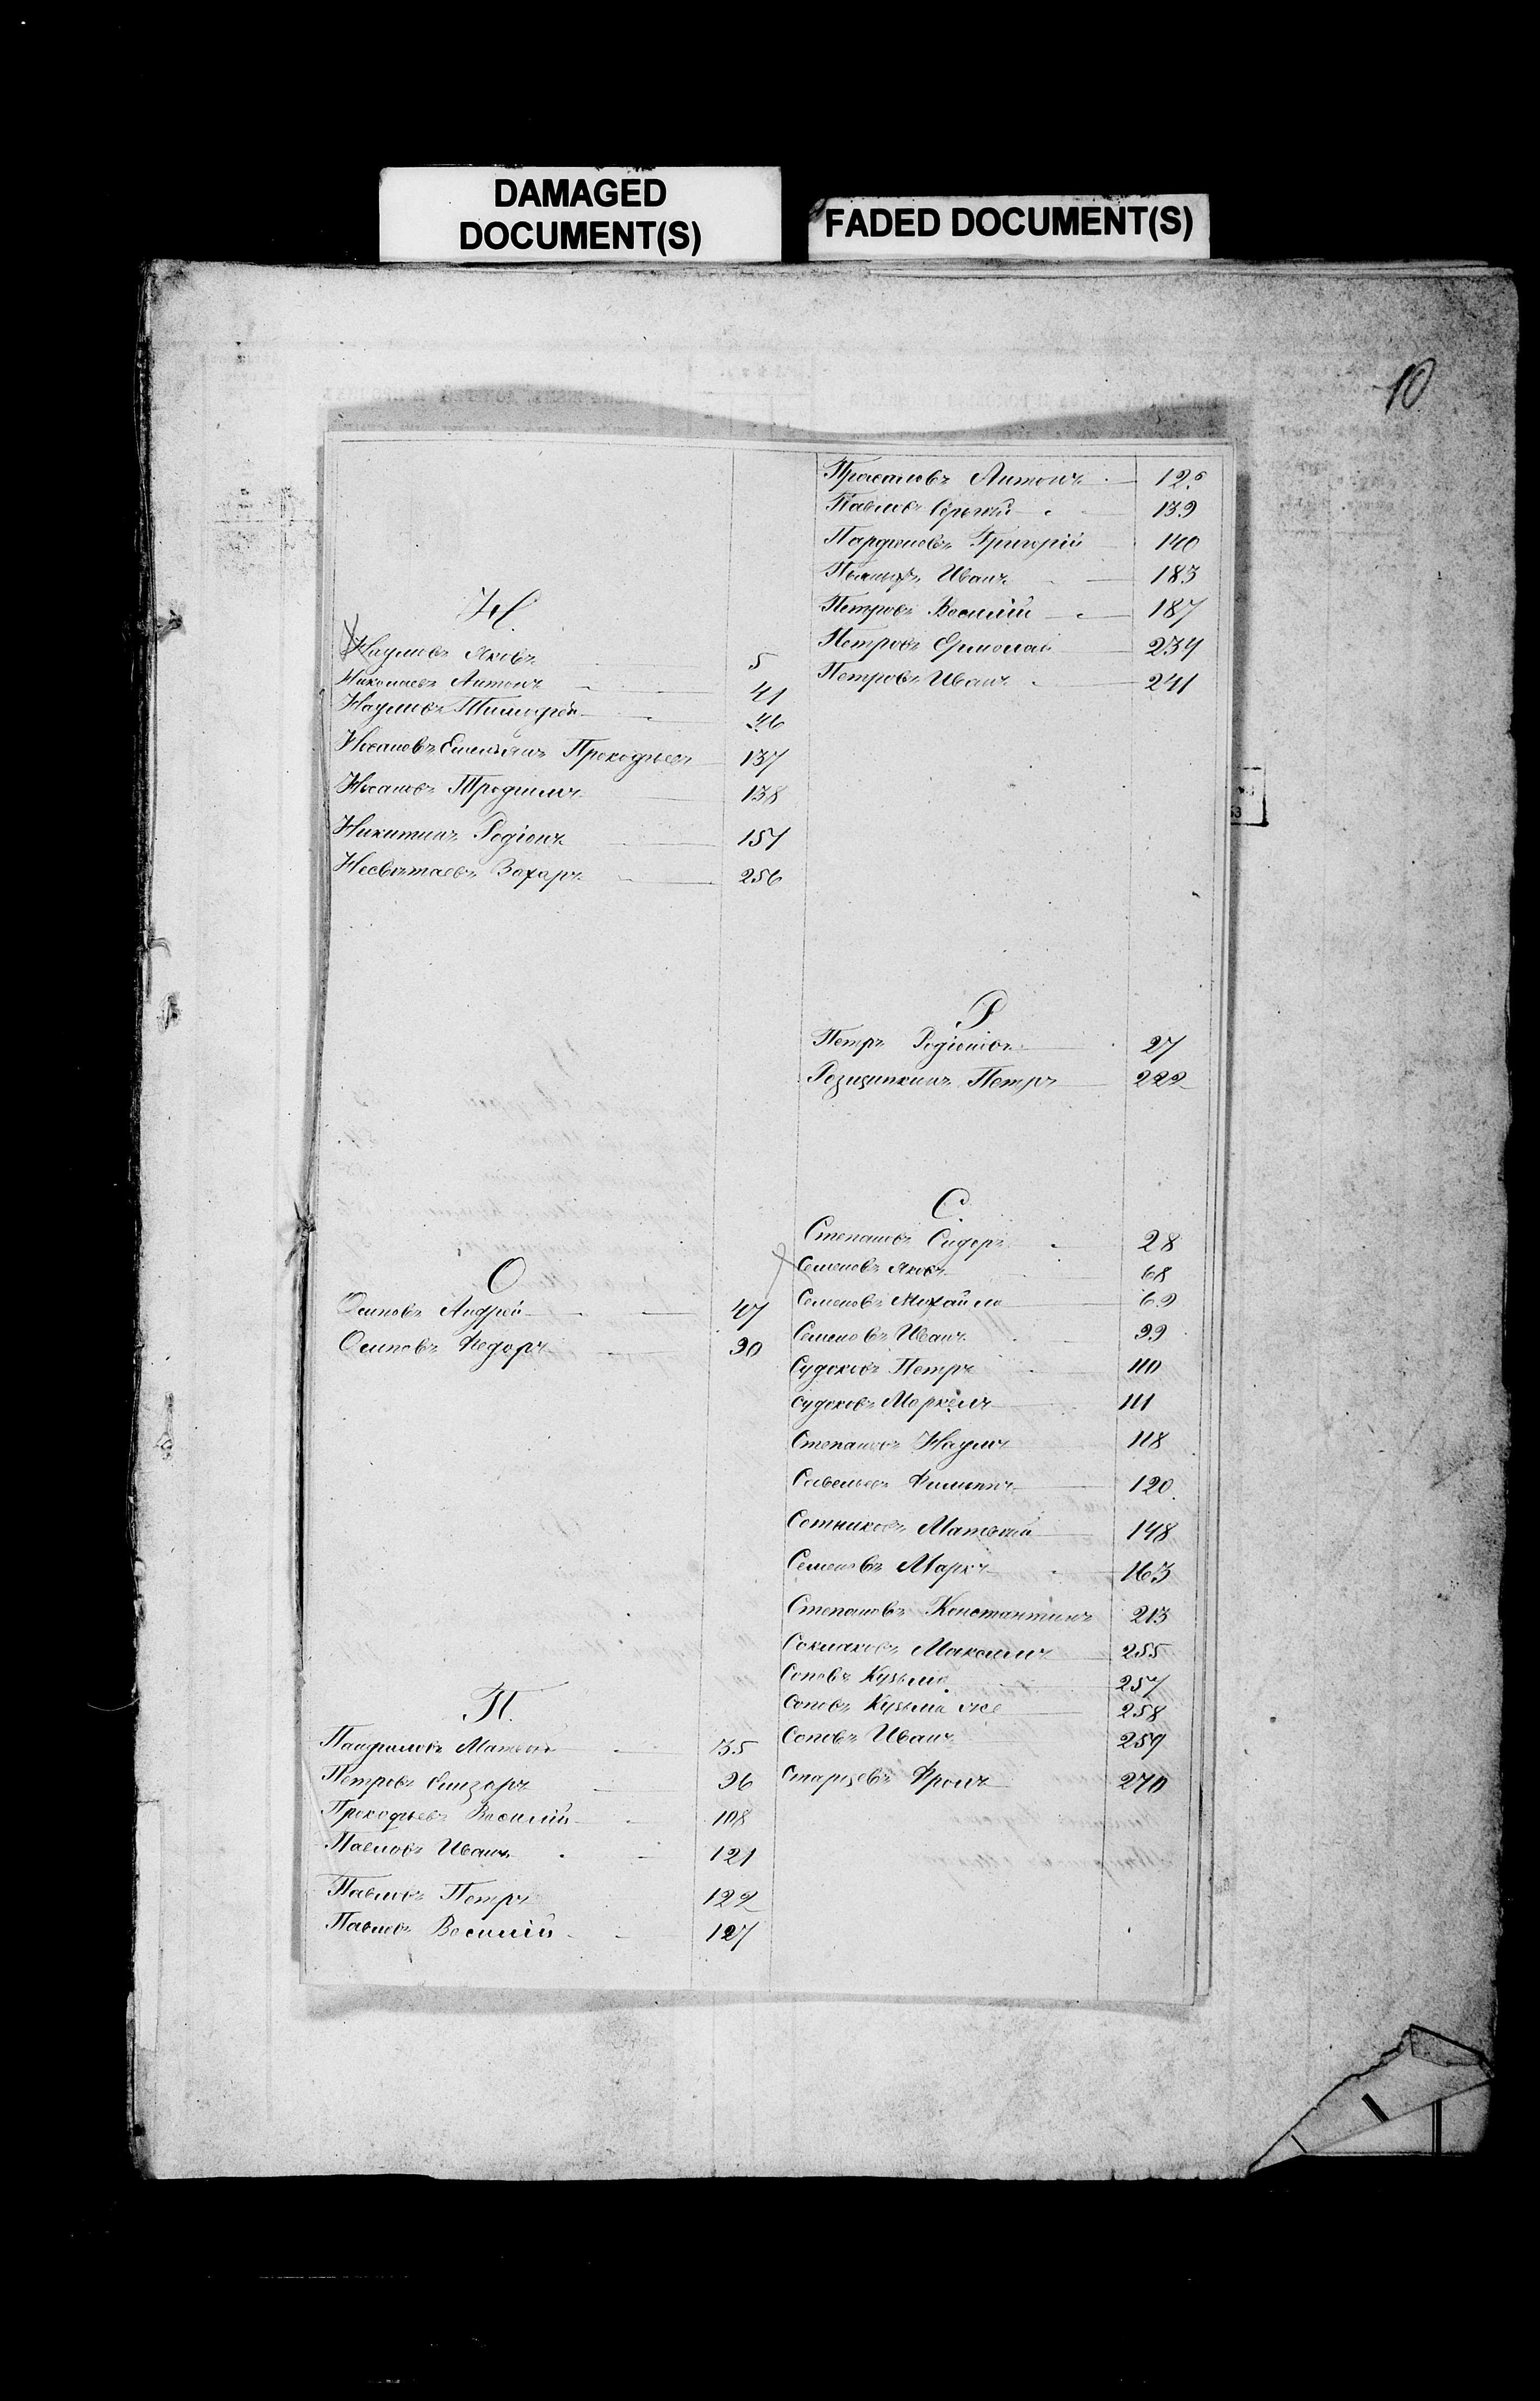 DAMAGED
DOCUMENT(S)
FADED DOCUMENT(S)
10
Н.
Наумовъ Яковъ 5
Николаевъ Антонъ 41
Наумовъ Тимофей 46
Носановъ Емельянъ Прокофьевъ 137
Носановъ Трофимъ 138
Никитинъ Родіонъ 151
Несвятаевъ Захаръ 256
О
Осиповъ Андрей 47
Осиповъ Федоръ 90
П.
Панфиловъ Матвей 35
Петровъ 96
Прокофьевъ Василій 108
Павловъ Иванъ 121
Павловъ Петръ 122
Павловъ Василій 127
Антонъ 126
Павловъ Сергей 139
Парфеновъ Григорій 140
Иванъ 183
Петровъ Василій 187
Петровъ Ермолай 239
Петровъ Иванъ 241
Р
Петръ Родіоновъ 27
Петръ 222
С.
Степановъ Сидоръ 28
Семеновъ Яковъ 68
Семеновъ Михайло 69
Семеновъ Иванъ 99
Судоковъ Петръ 110
Судоковъ Маркелъ 111
Степановъ Наумъ 118
Савельевъ Филиппъ 120
Сотниковъ Матвей 148
Семеновъ Маркъ 163
Степановъ Константинъ 213
Максимъ 255
Соповъ Кузьма 257
Соповъ Кузьма же 258
Соповъ Иванъ 259
Старцевъ Фролъ 270